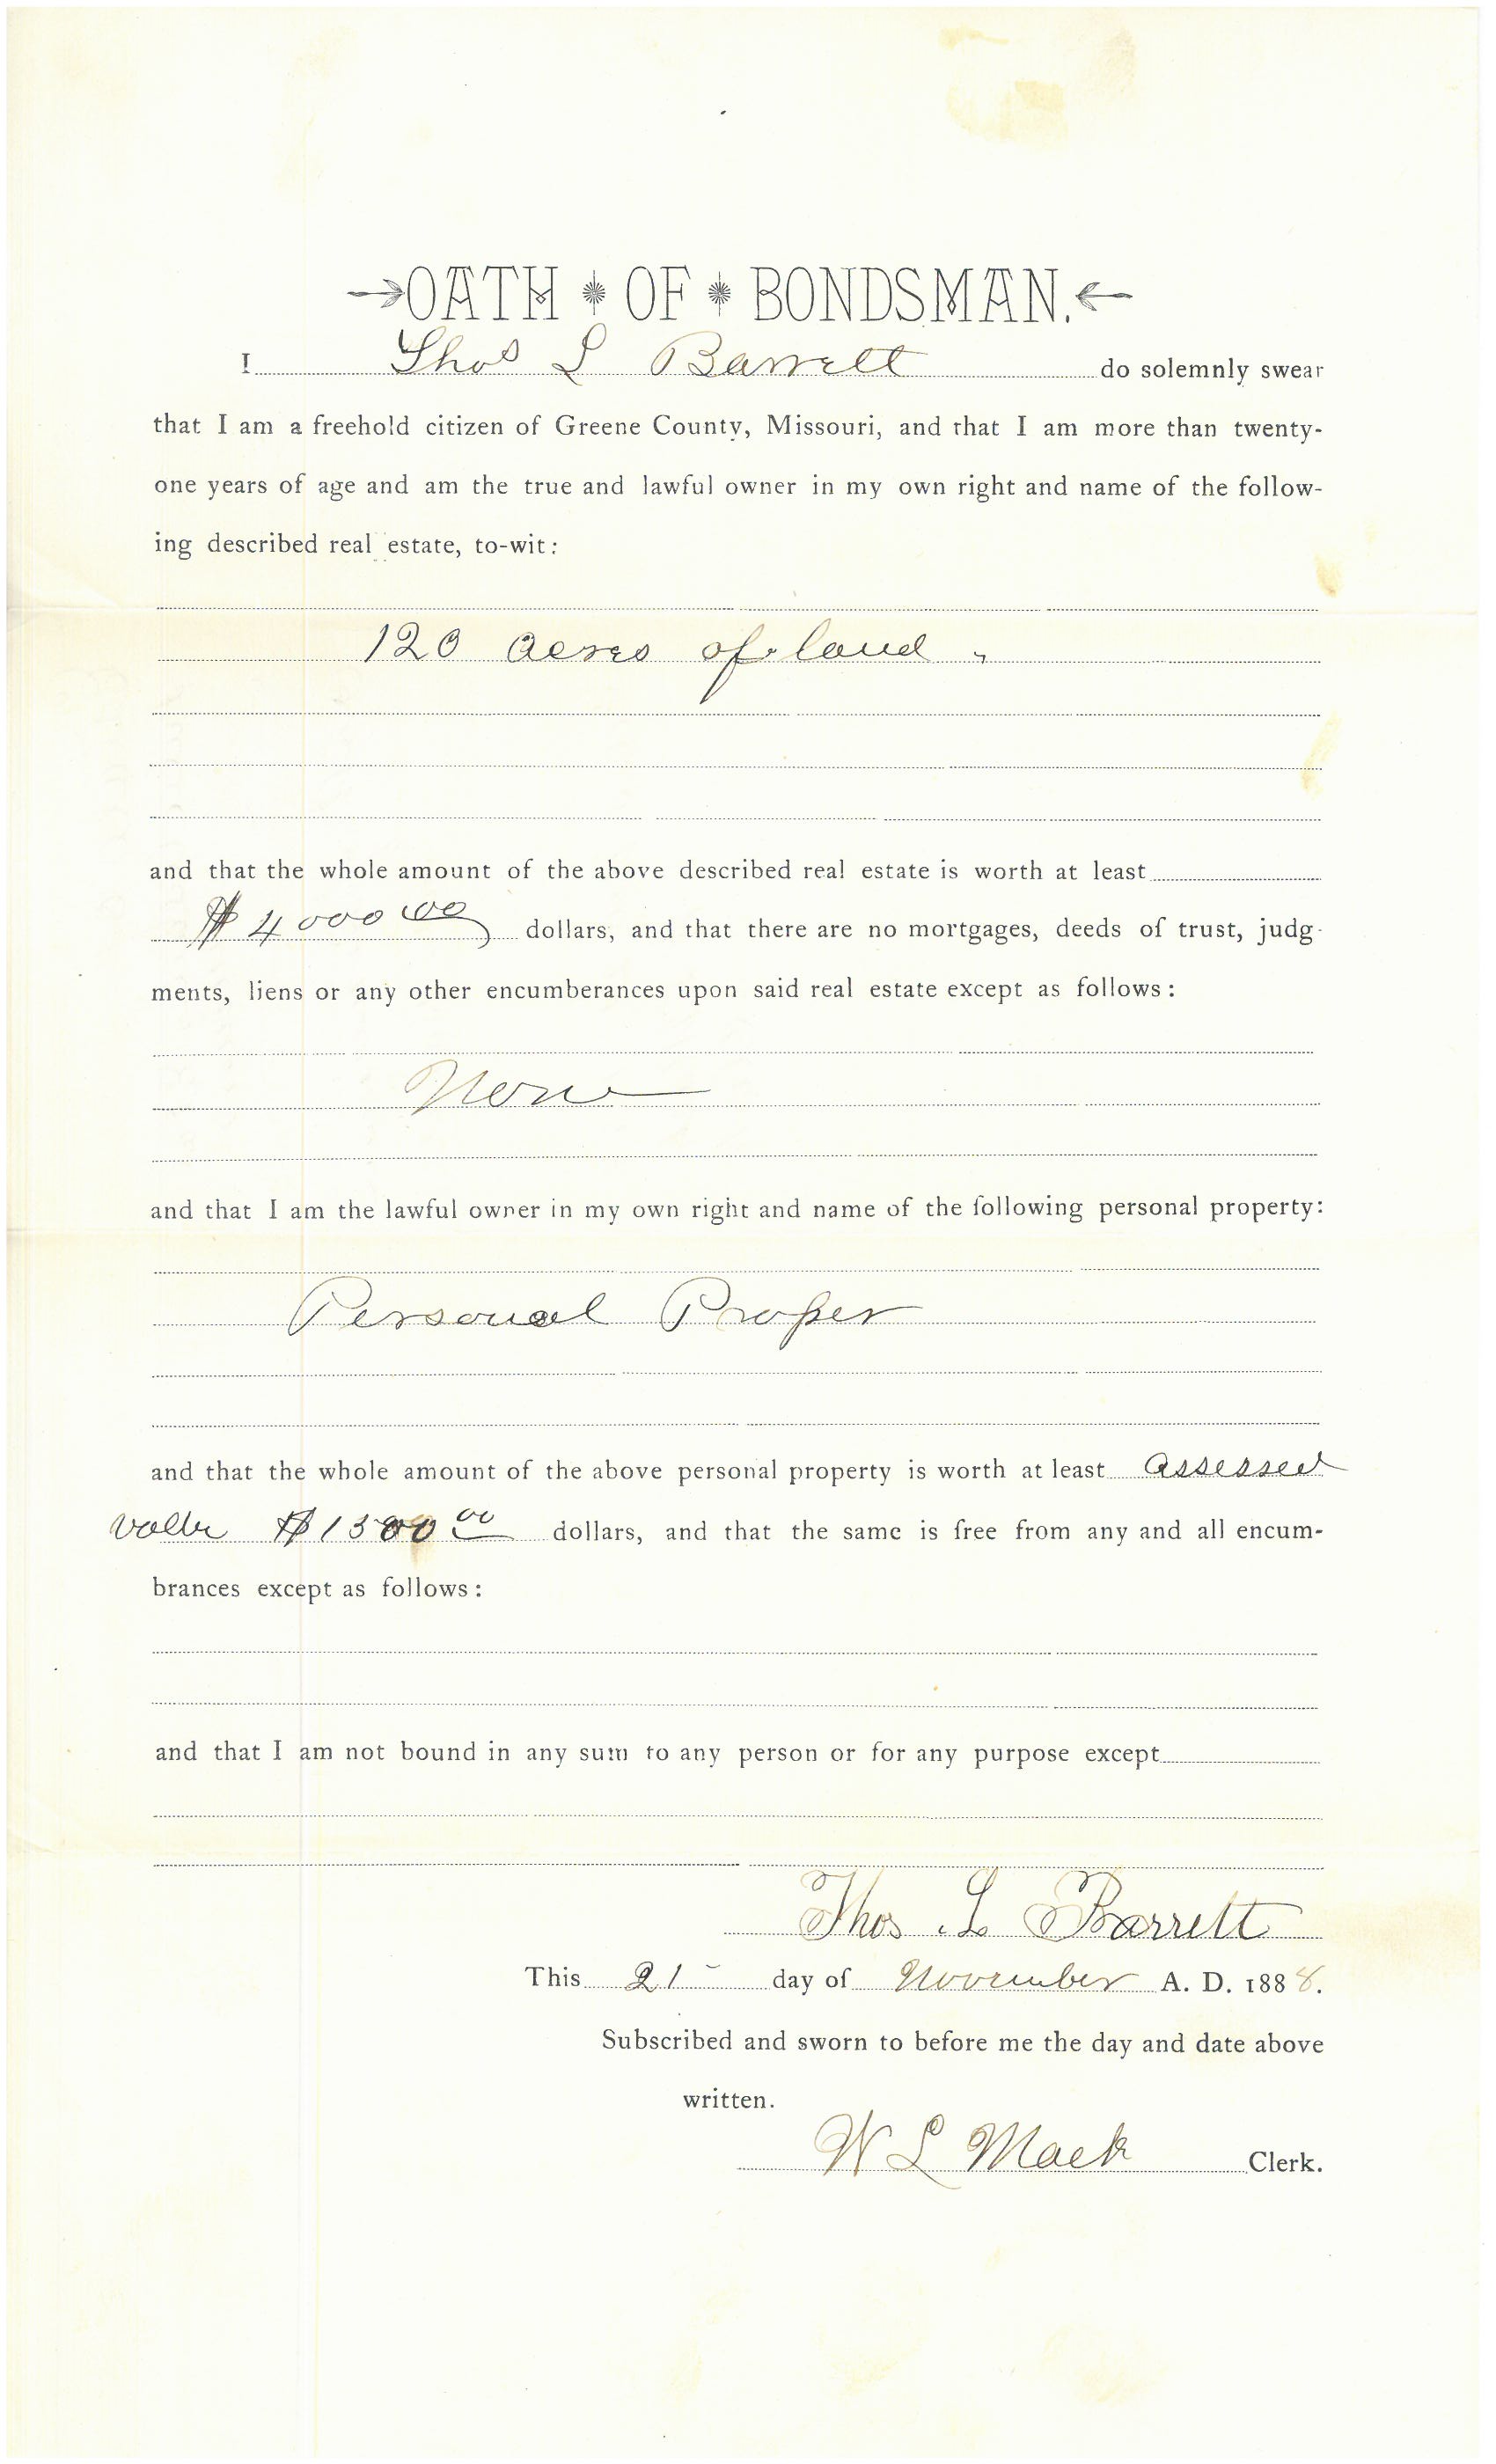 OATH OF BONDSMAN.
I Thos L Barrett do solemnly swear
that I am a freehold citizen of Greene County, Missouri, and that I am more than twenty-
one years of age and am the true and lawful owner in my own right and name of the follow-
ing described real estate, to-wit:
120 acres of land
and that the whole amount of the above described real estate is worth at least
$4000 00 dollars, and that there are no mortgages, deeds of trust, judg-
ments, liens or any other encumberances upon said real estate except as follows:
None
and that I am the lawful owner in my own right and name of the following personal property:
Personal Proper
and that the whole amount of the above personal property is worth at least assessed
$1300 00 dollars, and that the same is free from any and all encum-
brances except as follows:
and that I am not bound in any sum to any person or for any purpose except
Thos L Barrett
This 21 day of November A. D. 1888.
Subscribed and sworn to before me the day and date above
written.
W L Mack Clerk.